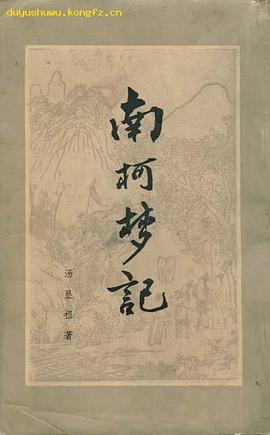 duyushuwu.kongfz.cn
南柯梦记
汤显祖著